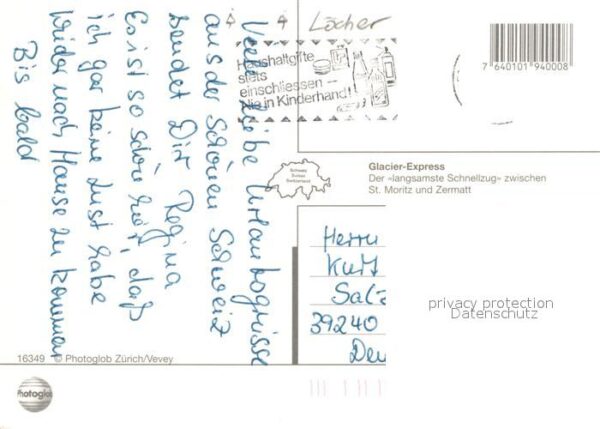 Viele liebe Urlaubsgrüsse
aus der schönen Schweiz
sendet Dir Regina
Es ist so schön hier, daß
ich gar keine Lust habe
wieder nach Hause zu kommen
Bis bald
Löcher
Haushaltgifte
stets
einschliessen –
Nie in Kinderhand!
7 640101 940008
Schweiz
Suisse
Switzerland
Glacier-Express
Der «langsamste Schnellzug» zwischen
St. Moritz und Zermatt
Herrn
Kurt
Salz
39240
Deu
privacy protection
Datenschutz
16349 © Photoglob Zürich/Vevey
Photoglob